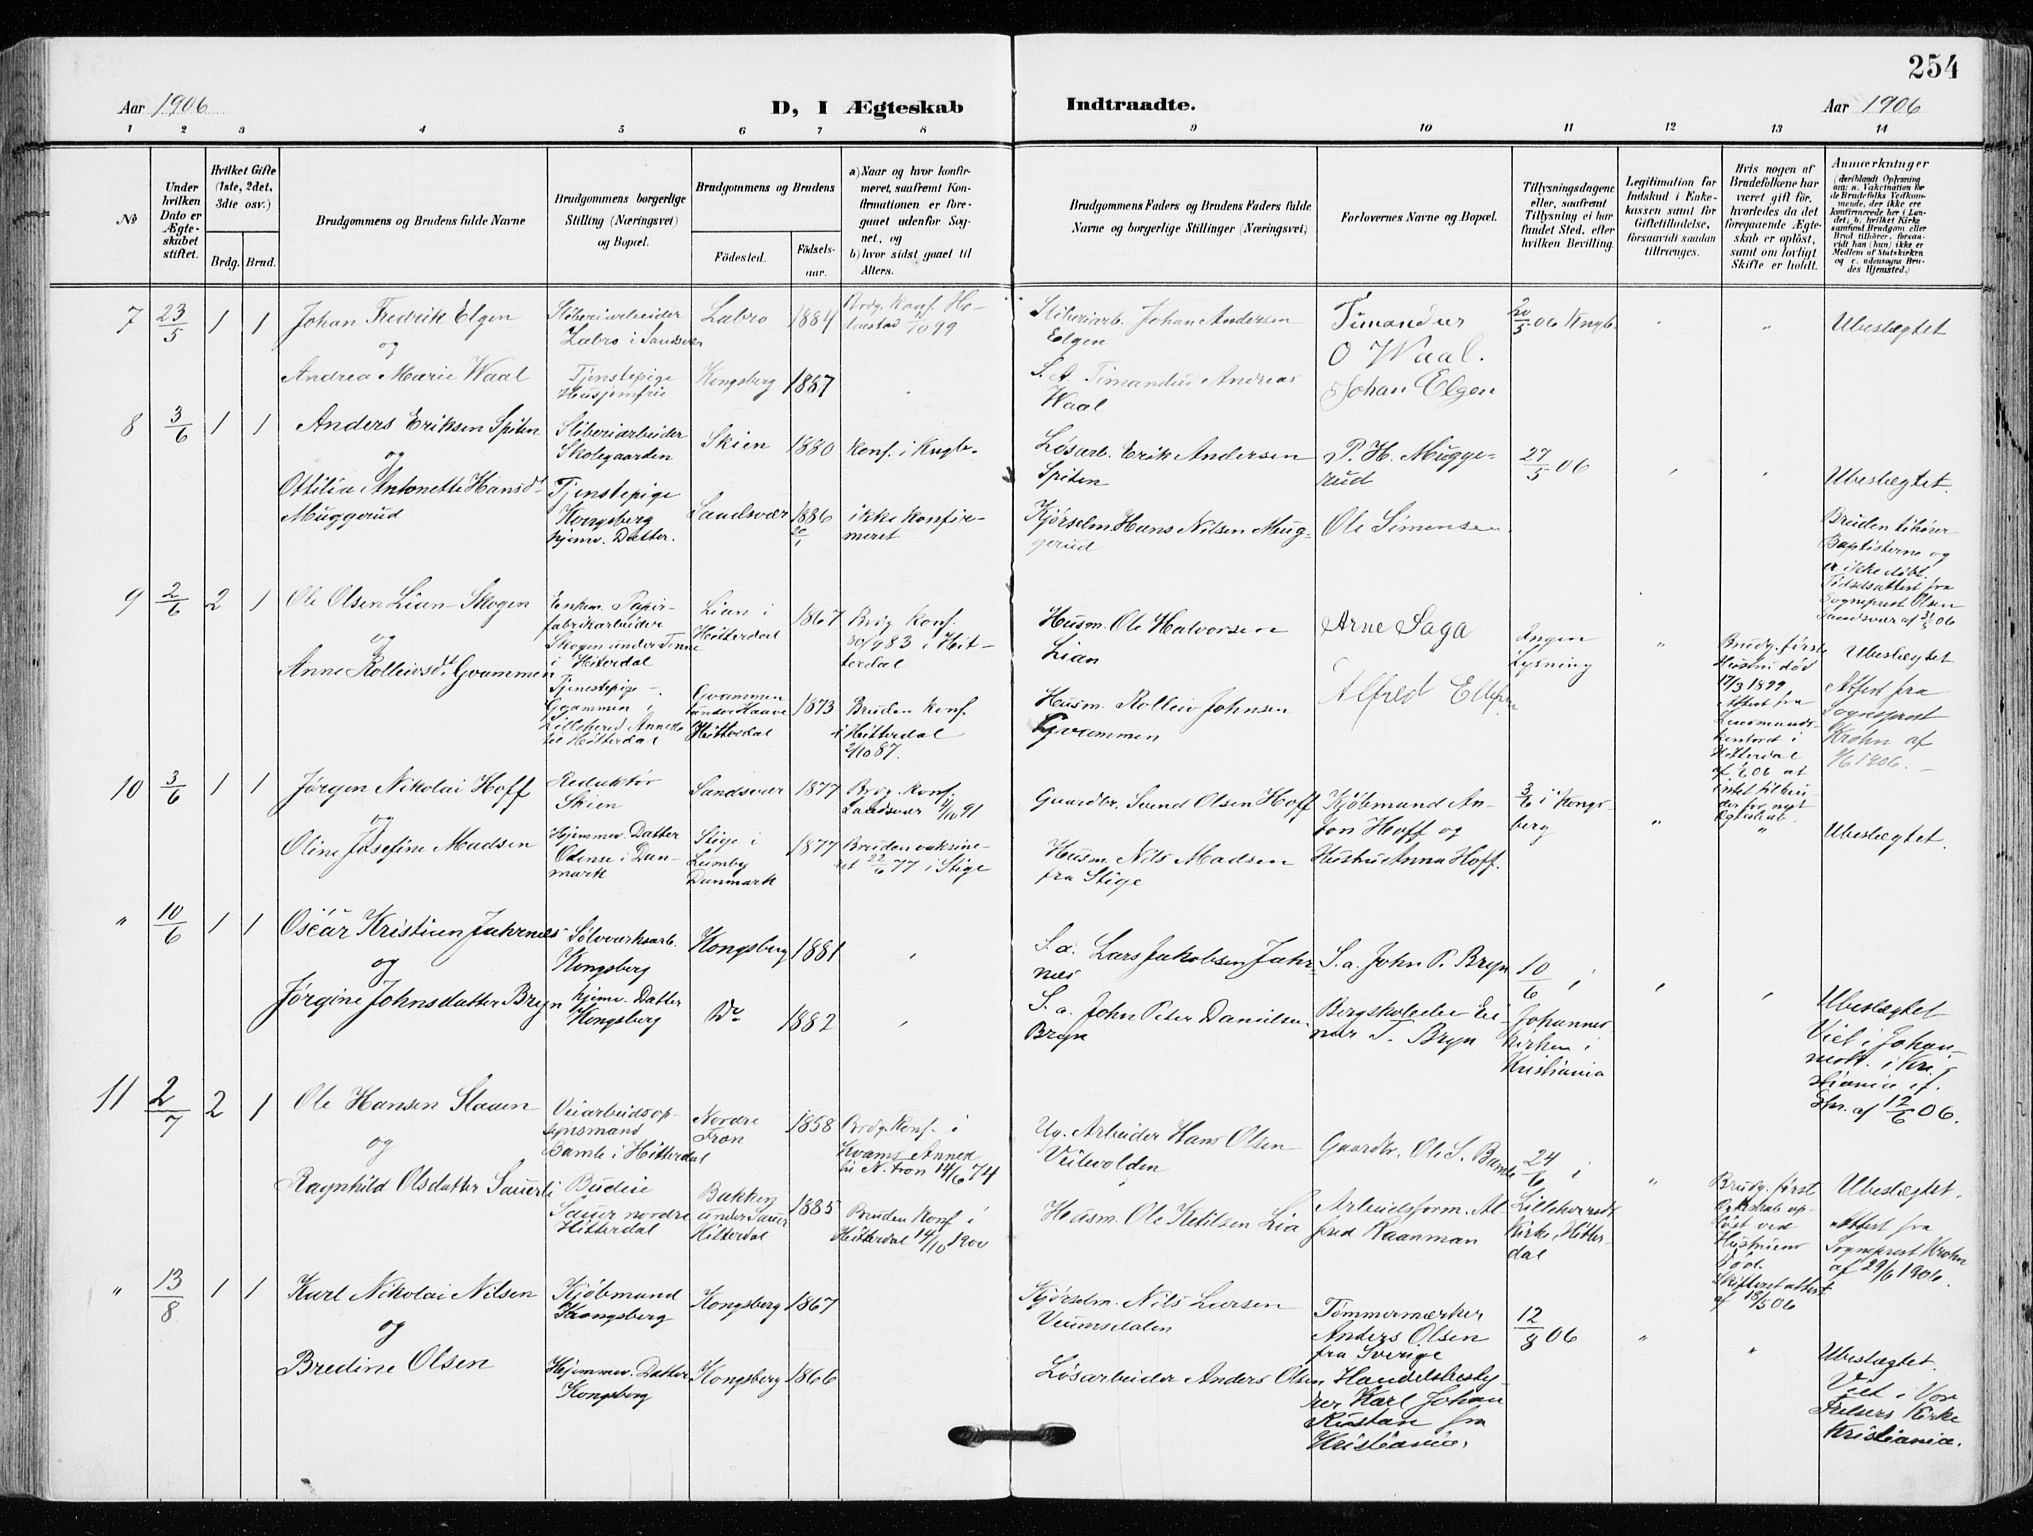 254
Aar 1906
D, I Ægteskab
Indtraadte.
Aar 1906
1 2 3 4 5 6 7 8 9 10 11 12 13 14
No
Under hvilken Dato er Ægteskabet stiftet.
Hvilket Gifte (1ste, 2det, 3die osv.)
Brdg. Brud.
Brudgommens og Brudens fulde Navne
Brudgommens borgerlige Stilling (Næringsvei) og Bopæl.
Brudgommens og Brudens
Födested.
Födselsaar.
a) Naar og hvor konfirmeret, saafremt Konfirmationen er foregaaet udenfor Sognet, og
b) hvor sidst gaaet til Alters.
Brudgommens Faders og Brudens Faders fulde Navne og borgerlige Stillinger (Næringsvei)
Forlovernes Navne og Bopæl.
Tillysningsdagene eller, saafremt Tillysning ei har fundet Sted, efter hvilken Bevilling.
Legitimation for Indskud i Enkekassen samt for Giftetilladelse, forsaavidt saadan tiltrænges.
Hvis nogen af Brudefolkene har været gift för, hvorledes da det foregaaende Ægteskab er oplöst, samt om lovligt Skifte er holdt.
Anmærkninger
(deriblandt Oplysning om: a. Vakcination for de Brudefolks Vedkommende, der ikke ere konfirmerede her i Landet; b. hvilket Kirkesamfund Brudgom eller Brud tilhörer, forsaavidt han (hun) ikke er Medlem af Statskirken og c. udensogns Brudes Hjemsted.)
7 23/5 1 1
Johan Fredrik Elgen
og
Andrea Marie Waal
Sliberiarbeider
Labro i Sandsvær
Tjenstepige
Labro 1884
Kongsberg 1887
Brdg. Konf. He-
Sliberiarb. Johan Andersen
Elgen
S. A. Timandus Andreas
Waal
Timandus
O Waal.
Johan Elgen
20/5 06 Kngb.
Ubeslegtet
8 3/6 1 1
Anders Eriksen Spiten
og
Ottilia Antonette Hansdt
Muggerud
Sliberiarbeider
Skolegaarden
Tjenstepige
Kongsberg
hjemv. Datter.
Skien 1880
Sandsvær 1886
20/1
Konf. i Kngb.
ikke konfir-
meret
Løsarb. Erik Andersen
Spiten
Kjörselm Hans Nilsen Mug-
gerud
P. H. Mugge-
rud
Ole Simensen
27/5 06
Ubeslegtet.
Bruden tilhører
Baptisterne og
er ikke døbt.
Fødselsattest fra
Sogneprest Olsen
Sandsvær af 31/5 06
9 2/6 2 1
Ole Olsen Lian - Skogen
og
Anne Rolleivsdt Gvammen
Enkem. Papir-
fabrikarbeider
Skogen under Tinne
i Hiterdal
Tjenestepige -
Gvammen i
Lilleherred Anneks
til Hitterdal
Lian i
Hitterdal
1867
Gvammen
under Haave
Hitterdal
1873
Brdg Konf.
30/9 83 i Hit-
terdal
Bruden Konf.
i Hitterdal
2/10 87.
Husm. Ole Halvorsen
Lian
Husm. Rolleiv Johnsen
Gvammen
Arne Saga
Alfred
Ingen
Lysning
Brudg. første
Hustru død
17/3 1899
Attest fra
Lensmands-
kontoret i
Hitterdal
intet tilhin
der for nyt
Ægteskab.
Ubeslegtet
Attest fra
Sogneprest
Krohn af
1/6 1906. -
10 3/6 1 1
Jørgen Nikolai Hoff
og
Oline Josefine Madsen
Redaktør
Skien
Hjemmev. Datter
Odense i Dan-
mark
Sandsvær 1877
Stige i
Lumby
Danmark
1877
Brdg. Konf.
Sandsvær 4/10 91
Bruden vaksine-
ret 22/6 77 i Stige
Gaardbr. Svend Olsen Hoff
Husm. Nils Madsen
fra Stige
Kjøbmand An-
ton Hoff og
Hustru Anna Hoff.
3/6 i Kongs-
berg
Ubeslegtet.
" 10/6 1 1
Oscar Kristian Jahrnes
og
Jørgine Johnsdatter Bryn
Sølvverksarb.
Kongsberg
hjemv. Datter
Kongsberg
Kongsberg 1881
Do 1882
S. a. Lars Jakobsen Jahr-
nes
S. a. John Peter Danielsen
Bryn
S. a. John P. Bryn
Bergskoleelev Ei-
nar T. Bryn
10/6 i
Johannes
kirken i
Kristiania
Ubeslegtet
Viet i Johan-
nesk. i Kri-
stiania if.
Skr. af 12/6 06.
11 2/7 2 1
Ole Hansen Slaaen
og
Ragnhild Olsdatter Sauerli
Veiarbeidsop-
synsmand
Bamle i Hitterdal
Budeie
Sauer nordre
Hitterdal
Nordre
Fron
1858
Bakken
under Sauer
Hitterdal
1885
Brdg. Konf. i
Kvams Annex
til N. Fron 14/6 74
Bruden Konf i
Hitterdal 14/10 1900
Ug. Arbeider Hans Olsen
Veilevolden
Husm. Ole Ketilsen Lia
Gaardbr. Ole S. Bamle
Arbeidsform. Al
fred Raanman
24/6 i
Lilleherreds
Kirke, Hitter-
dal
Brudg. først
Egteskab op-
løst ved
Hustruens
Død.
Skifteret attest
af 18/5 06
Ubeslegtet.
Attest fra
Sogneprest Krohn
af 29/6 1906.
" 13/8 1 1
Karl Nikolai Nilsen
og
Bredine Olsen
Kjøbmand
Kongsberg
Hjemmev. Datter
Kongsberg
Kongsberg 1867
Kongsberg 1866
Kjørselm. Nils Larsen
Veumsdalen
Løsarbeider Anders Olsen
Tømmermærker
Anders Olsen
fra Sverige
Handelsbesty-
rer Karl Johan
Rustan fra
Kristiania.
12/8 06
Ubeslegtet.
Viet i Vor
Frelsers Kirke
Kristiania.